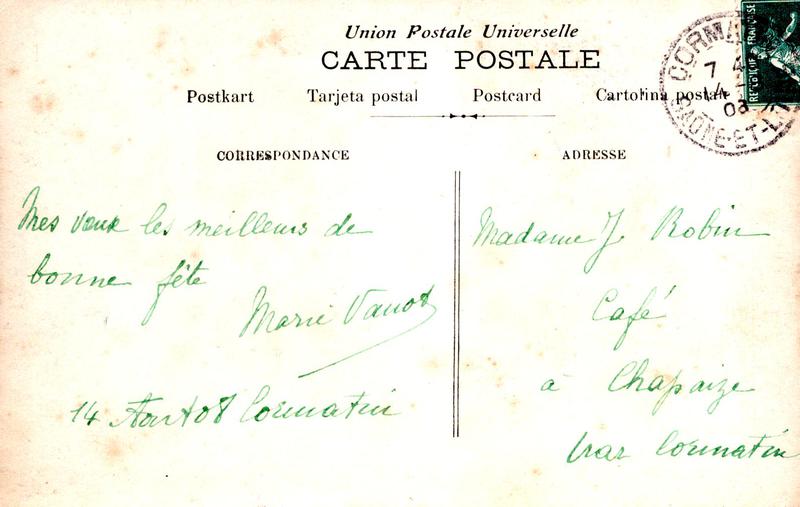 Union Postale Universelle
CARTE POSTALE
Postkart Tarjeta postal Postcard Cartolina postale
CORMA
7
14
08
SAÔNE-ET-L
REPUBLIQUE FRANÇAISE
CORRESPONDANCE
ADRESSE
Mes vœux les meilleurs de
bonne fête
Marie Vanot
14 Août 08 Cormatin
Madame J. Robin
Café
à Chapaize
par Cormatin